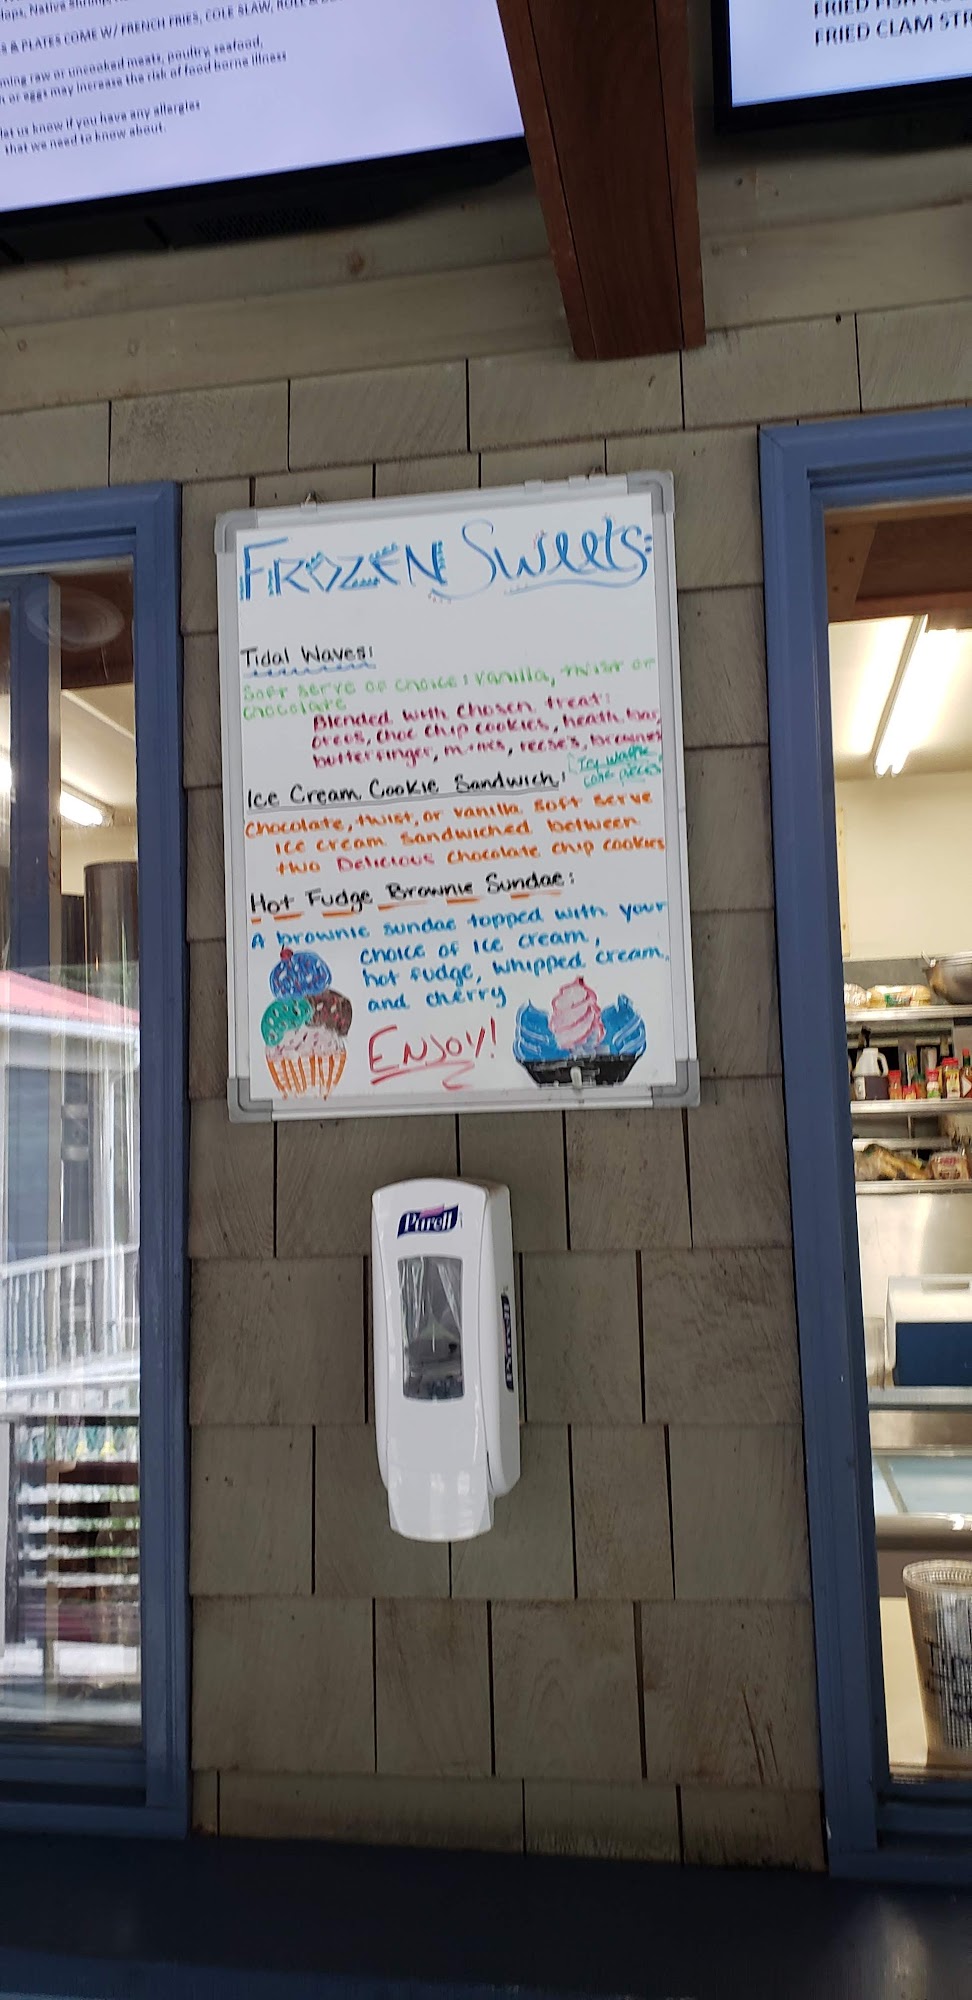 Native Shrimp
& PLATES COME W/ FRENCH FRIES, COLE SLAW,
raw or uncooked meats, poultry, seafood,
or eggs may increase the risk of food borne illness
let us know if you have any allergies
that we need to know about.
FRIED
FRIED CLAM
FROZEN Sweets:
Tidal Waves:
Soft serve of choice: vanilla, twist or
chocolate
Blended with chosen treat:
oreos, choc chip cookies, heath bar,
butterfinger, m+m's, reese's, brownies
Try waffle
cone pieces
Ice Cream Cookie Sandwich:
Chocolate, twist, or vanilla soft serve
ice cream sandwiched between
two Delicious chocolate chip cookies
Hot Fudge Brownie Sundae:
A brownie sundae topped with your
choice of ice cream,
hot fudge, whipped cream,
and cherry
ENJOY!
Purell
Purell